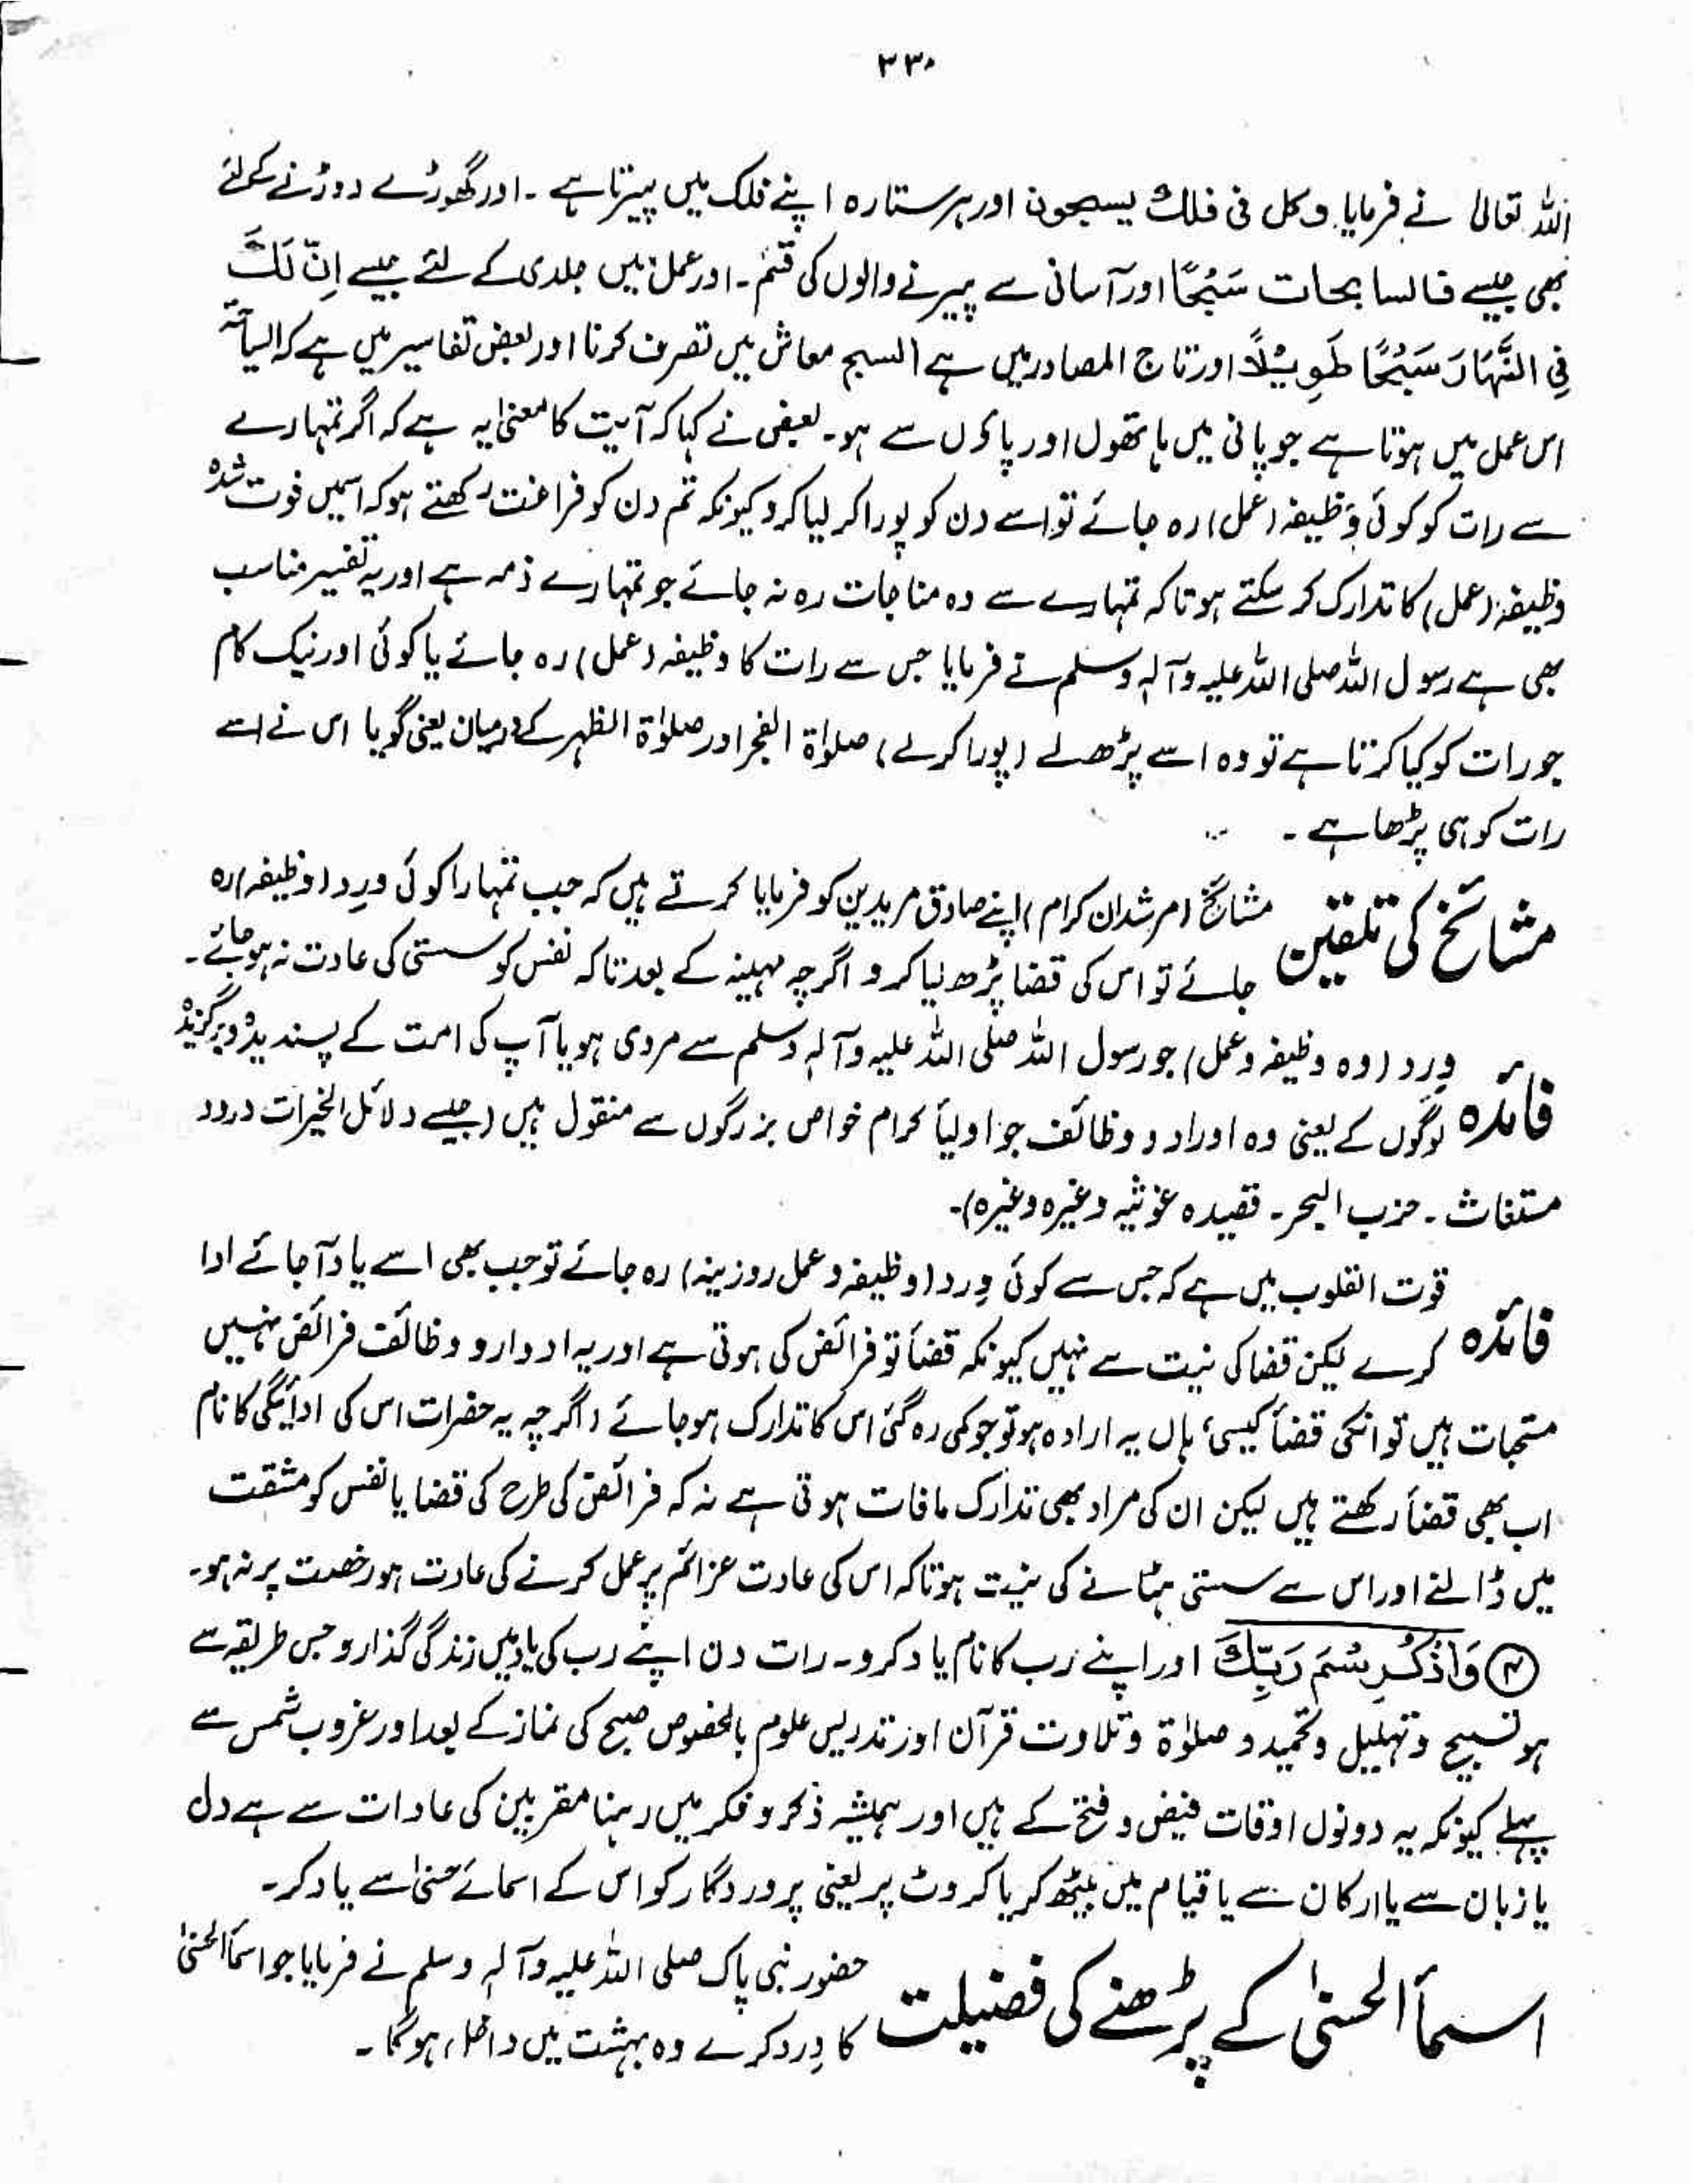 ۲۳۰
اللہ تعالیٰ نے فرمایا وکل فی فلک یسبحون اور ہر ستارہ اپنے فلک میں پیرتا ہے ۔ اور گھوڑے دوڑنے کے لئے
بھی جیسے فالسابحات سَبْحًا اور آسانی سے پیرنے والوں کی قسم ۔ اور عمل میں جلدی کے لئے جیسے اِنَّ لَکَ
فِی النَّہَارَ سَبْحًا طَوِیْلًا اور تاج المصادر میں ہے السبح معاش میں تصرف کرنا اور بعض تفاسیر میں ہے کہ السباحۃ
اس عمل میں ہوتا ہے جو پانی میں ہاتھوں اور پاؤں سے ہو ۔ بعض نے کہا کہ آیت کا معنیٰ یہ ہے کہ اگر تمہارے
سے رات کو کوئی وظیفہ (عمل) رہ جائے تو اسے دن کو پورا کر لیا کرو کیونکہ تم دن کو فراغت رکھتے ہو کہ اسمیں فوت شدہ
وظیفہ (عمل) کا تدارک کر سکتے ہو تاکہ تمہارے سے وہ مناجات رہ نہ جائے جو تمہارے ذمہ ہے اور یہ تفسیر مناسب
بھی ہے رسول اللہ صلی اللہ علیہ وآلہٖ وسلم نے فرمایا جس سے رات کا وظیفہ (عمل) رہ جائے یا کوئی اور نیک کام
جو رات کو کیا کرتا ہے تو وہ اسے پڑھ لے (پورا کرلے) صلوٰۃ الفجر اور صلوٰۃ الظہر کے درمیان یعنی گویا اس نے اسے
رات کو ہی پڑھا ہے ۔
مشائخ کی تلقین مشائخ (مرشدان کرام) اپنے صادق مریدین کو فرمایا کرتے ہیں کہ جب تمہارا کوئی وِرد (وظیفہ) رہ
جائے تو اس کی قضا پڑھ لیا کرو اگرچہ مہینہ کے بعد تاکہ نفس کو سستی کی عادت نہ ہوجائے ۔
فائدہ وِرد (وہ وظیفہ وعمل) جو رسول اللہ صلی اللہ علیہ وآلہٖ وسلم سے مروی ہو یا آپ کی امت کے پسندیدہ وبرگزیدہ
لوگوں کے یعنی وہ اوراد و وظائف جو اولیأ کرام خواص بزرگوں سے منقول ہیں (جیسے دلائل الخیرات درود
مستغاث ۔ حزب البحر ۔ قصیدہ غوثیہ وغیرہ وغیرہ) ۔
فائدہ قوت القلوب میں ہے کہ جس سے کوئی وِرد (وظیفہ وعمل روزینہ) رہ جائے تو جب بھی اسے یاد آجائے ادا
کرے لیکن قضا کی نیت سے نہیں کیونکہ قضأ تو فرائض کی ہوتی ہے اور یہ ادوارو وظائف فرائض نہیں
مستحبات ہیں تو انکی قضأ کیسی؛ ہاں یہ ارادہ ہو تو جو کمی رہ گئی اس کا تدارک ہوجائے (اگرچہ یہ حضرات اس کی ادائیگی کا نام
اب بھی قضأ رکھتے ہیں لیکن ان کی مراد بھی تدارک مافات ہوتی ہے نہ کہ فرائض کی طرح کی قضا یا نفس کو مشقت
میں ڈالنے اور اس سے سستی ہٹانے کی نیت ہو تاکہ اس کی عادت عزائم پر عمل کرنے کی عادت ہو رخصت پر نہ ہو ۔
وَاذْکُرِسْمَ رَبِّکَ اور اپنے رب کا نام یاد کرو ۔ رات دن اپنے رب کی یاد میں زندگی گذارو جس طریقہ سے
ہو تسبیح وتہلیل وتحمید و صلوٰۃ و تلاوت قرآن اور تدریس علوم بالخصوص صبح کی نماز کے بعد اور غروب شمس سے
پہلے کیونکہ یہ دونوں اوقات فیض و فتح کے ہیں اور ہمیشہ ذکر و فکر میں رہنا مقربین کی عادات سے ہے دل
یا زبان سے یا ارکان سے یا قیام میں بیٹھ کر یا کروٹ پر یعنی پروردگار کو اس کے اسمائے حسنیٰ سے یاد کر ۔
اسمأ الحسنیٰ کے پڑھنے کی فضیلت حضور نبی پاک صلی اللہ علیہ وآلہٖ وسلم نے فرمایا جو اسمأ الحسنیٰ
کا وِرد کرے وہ بہشت میں داخل ہوگا ۔